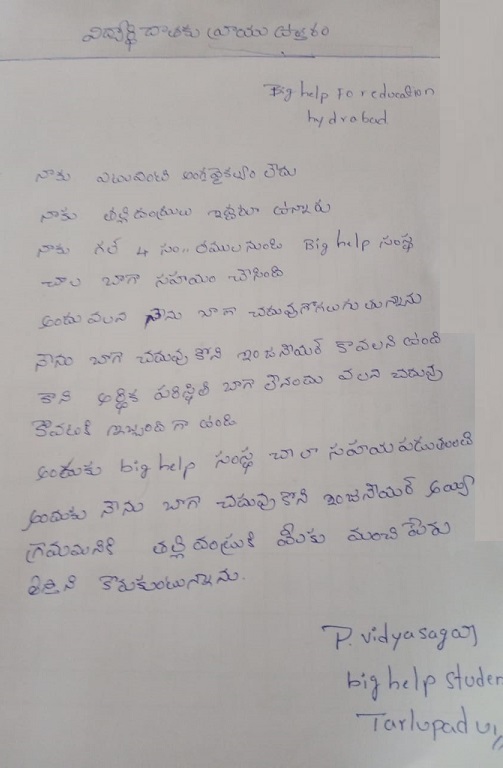 విద్యార్థి దాతకు వ్రాయు ఉత్తరం
Big help For education
hydrabad
నాకు ఎటువంటి అంగవైకల్యం లేదు
నాకు తల్లి దండ్రులు ఇద్దరూ ఉన్నారు
నాకు గత 4 సం,, రముల నుండి Big help సంస్థ
చాల బాగా సహాయం చేసింది
అందు వలన నేను బాగా చదువుగోగలుగు తున్నాను
నేను బాగా చదువు కొని ఇంజనీయర్ కావలని ఉంది
కాని ఆర్థిక పరిస్థితి బాగా లేనందు వలన చదువు
కోవటకి ఇబ్బంది గా ఉంది
అందుకు big help సంస్థ చాలా సహాయ పడుతుంది
అందుకు నేను బాగా చదువు కొని ఇంజనీయర్ అయ్యి
గ్రామమనికి తల్లి దండ్రుకి మీకు మంచి పేరు
కొరుకుంటున్నాను.
P. vidyasagar
big help studen
Tarlupad vi//